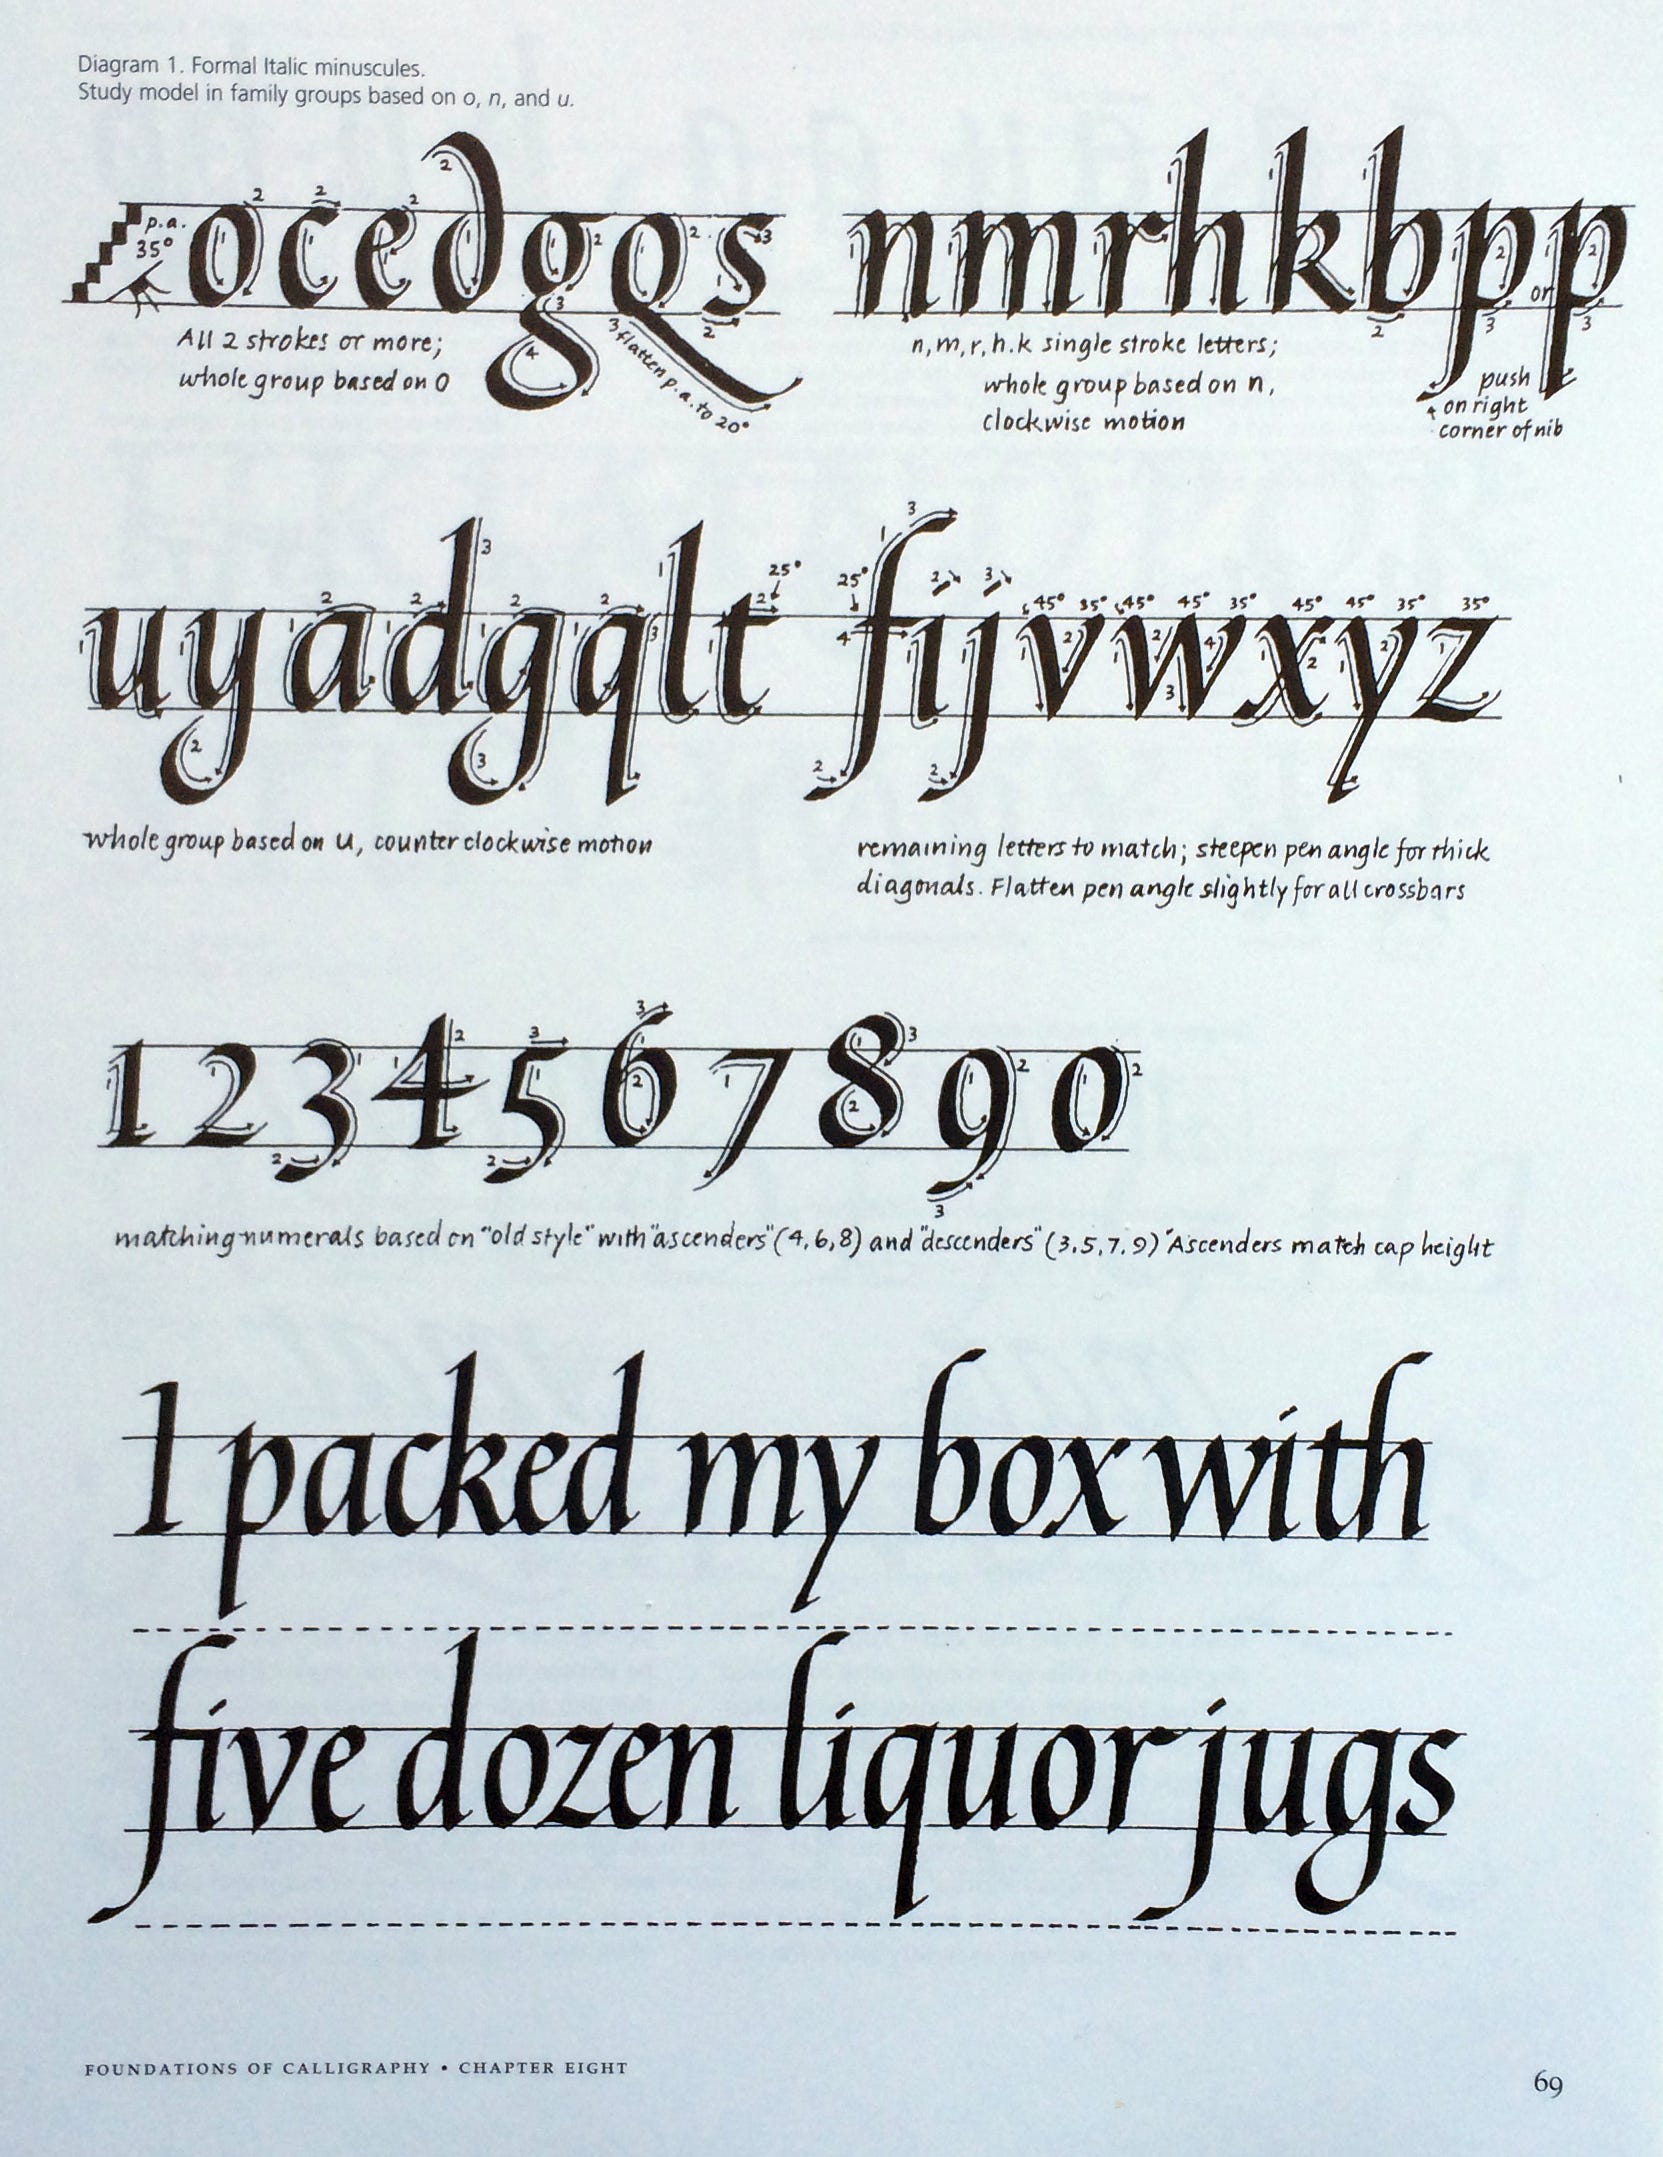 Diagram 1. Formal Italic minuscules.
Study model in family groups based on o, n, and u.
p.a. 35°
o c e d g q s
n m r h k b p or p
All 2 strokes or more;
whole group based on o
3 flatten p.a. to 20°
n, m, r, h. k single stroke letters;
whole group based on n,
clockwise motion
push
on right
corner of nib
u y a d g q l t
f i j v w x y z
25° 25° 45° 35° 45° 45° 35° 45° 45° 35° 35°
whole group based on u, counter clockwise motion
remaining letters to match; steepen pen angle for thick
diagonals. Flatten pen angle slightly for all crossbars
1 2 3 4 5 6 7 8 9 0
matching numerals based on "old style" with "ascenders" (4, 6, 8) and "descenders" (3, 5, 7, 9) Ascenders match cap height
I packed my box with
five dozen liquor jugs
FOUNDATIONS OF CALLIGRAPHY • CHAPTER EIGHT
69